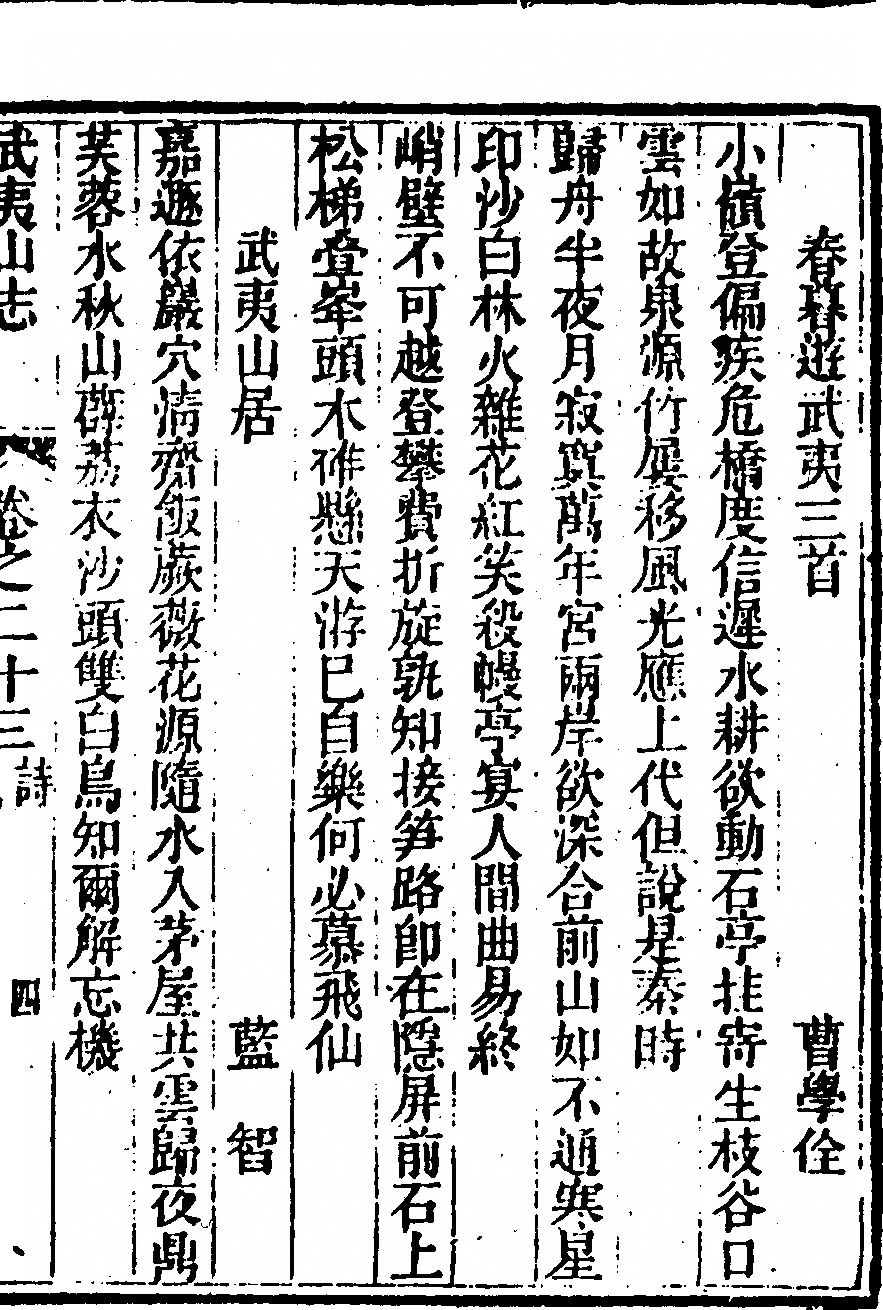 春暮遊武夷三首 曹學佺
小嶺登偏疾危橋度信遲水耕欲動石亭挂寄生枝谷口
雲如故泉源竹屢移風光應上代但說是秦時
歸舟半夜月寂寞萬年宮兩岸欲深合前山如不通寒星
印沙白林火雜花紅笑殺幔亭宴人間曲易終
峭壁不可越登攀費折旋孰知接笋路卽在隱屏前石上
松梯疊峯頭木碓懸天游巳自樂何必慕飛仙
武夷山居 藍智
嘉遯依巖穴清齋飯蕨薇花源隨水入茅屋共雲歸夜鼎
芙蓉水秋山薜荔衣沙頭雙白鳥知爾解忘機
武夷山志 卷之二十三 詩 四